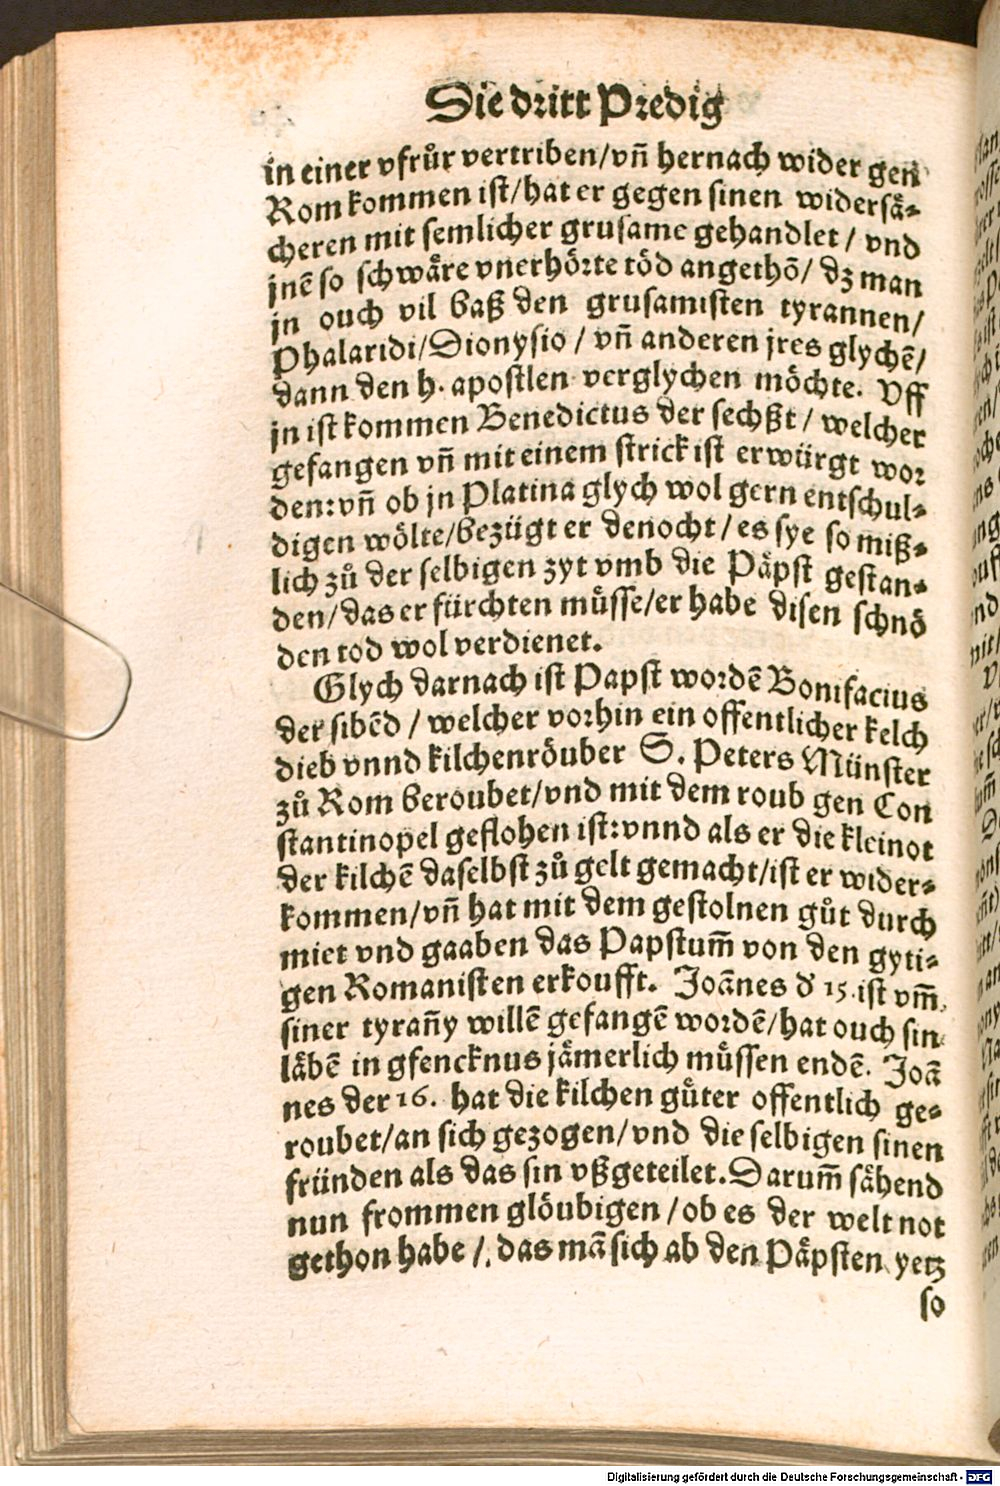 Die dritt Predig
in einer vfrůr vertriben/vñ hernach wider gen
Rom kommen ist/hat er gegen sinen widersaͤ⸗
cheren mit semlicher grusame gehandlet / vnd
jnē so schwaͤre vnerhoͤrte toͤd angethō/ dz man
jn ouch vil baß den grusamisten tyrannen/
Phalaridi/Dionysio / vñ anderen jres glychē/
dann den h. apostlen verglychen moͤchte. Vff
jn ist kommen Benedictus der sechßt / welcher
gefangen vñ mit einem strick ist erwürgt wor
den:vñ ob jn Platina glych wol gern entschul⸗
digen woͤlte/bezügt er denocht / es sye so miß⸗
lich zů der selbigen zyt vmb die Paͤpst gestan⸗
den/das er fürchten muͤsse/er habe disen schnoͤ
den tod wol verdienet.
Glych darnach ist Papst wordē Bonifacius
der sibēd / welcher vorhin ein offentlicher kelch
dieb vnnd kilchenroͤuber S. Peters Münster
zů Rom beroubet/vnd mit dem roub gen Con
stantinopel geflohen ist:vnnd als er die kleinot
der kilchē daselbst zů gelt gemacht/ist er wider⸗
kommen/vñ hat mit dem gestolnen gůt durch
miet vnd gaaben das Papstum̄ von den gyti⸗
gen Romanisten erkoufft. Joānes d' 15. ist vm̄
siner tyrañy willē gefangē wordē/hat ouch sin
laͤbē in gfencknus jaͤmerlich muͤssen endē. Joā
nes der 16. hat die kilchen guͤter offentlich ge⸗
roubet/an sich gezogen/vnd die selbigen sinen
fründen als das sin vßgeteilet. Darum̄ saͤhend
nun frommen gloͤubigen / ob es der welt not
gethon habe /. das mā sich ab den Paͤpsten yetz
so
Digitalisierung gefördert durch die Deutsche Forschungsgemeinschaft - DFG